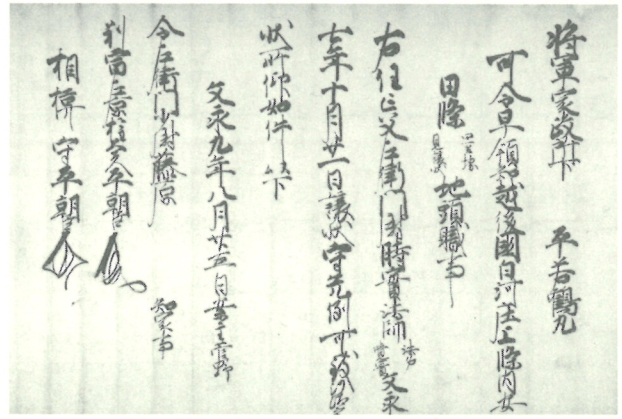 将軍家政所下 平若鶴丸
可令早領知越後國白河庄上條内女
田條 地頭職事
右任亡父左衛門尉時實法師 法名 文永
七年十月廿一日譲状守先例可致沙汰
状所仰如件以下
文永九年八月廿五日案主菅野
知家事
令左衛門少尉藤原
別當左京権大夫平朝臣
相模守平朝臣